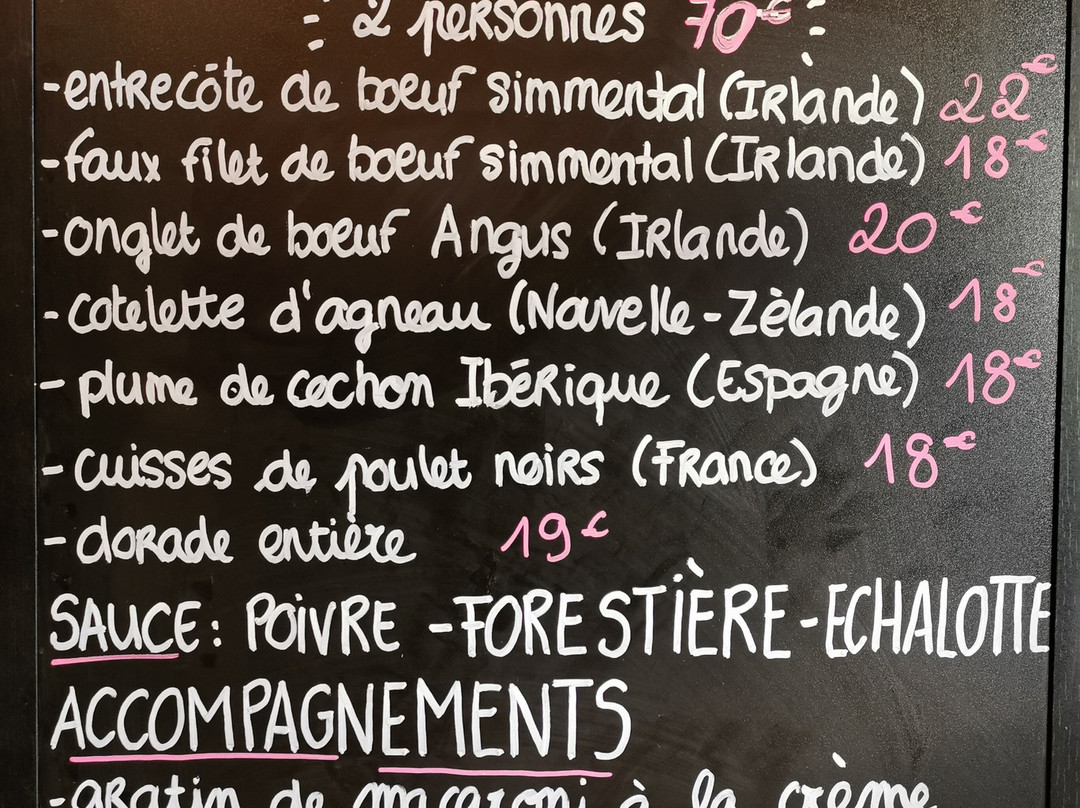 2 personnes 70€
-entrecôte de boeuf simmental (Irlande) 22€
-faux filet de boeuf simmental (Irlande) 18€
-onglet de boeuf Angus (Irlande) 20€
-cotelette d'agneau (Nouvelle-Zèlande) 18€
- plume de cochon Ibérique (Espagne) 18€
- cuisses de poulet noirs (France) 18€
- dorade entière 19€
SAUCE: POIVRE -FORESTIÈRE-ECHALOTTE
ACCOMPAGNEMENTS
-gratin de macaroni à la crème